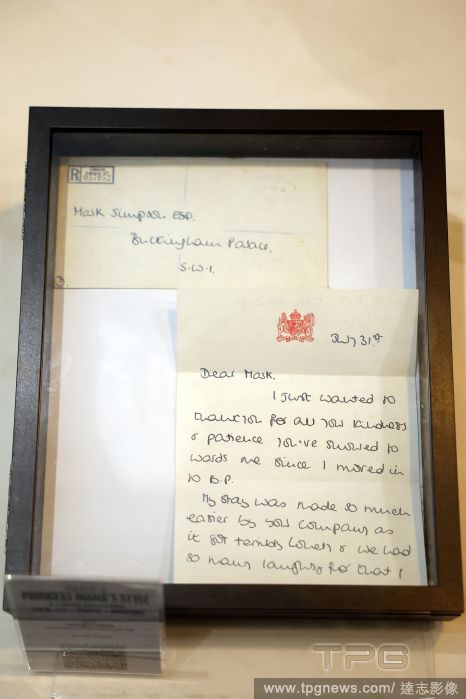 R
Mark Simpson Esq.
Buckingham Palace.
S.W.1.
D.
July 31st
Dear Mark.
I just wanted to
thank you for all your kindness
& patience you've showed to
wards me since I moved in
to B.P.
My stay was made so much
easier by your company as
it got terribly lonely & we had
so many laughs for that I
PRINCESS DIANA'S
TPG
www.tpgnews.com/ 達志影像